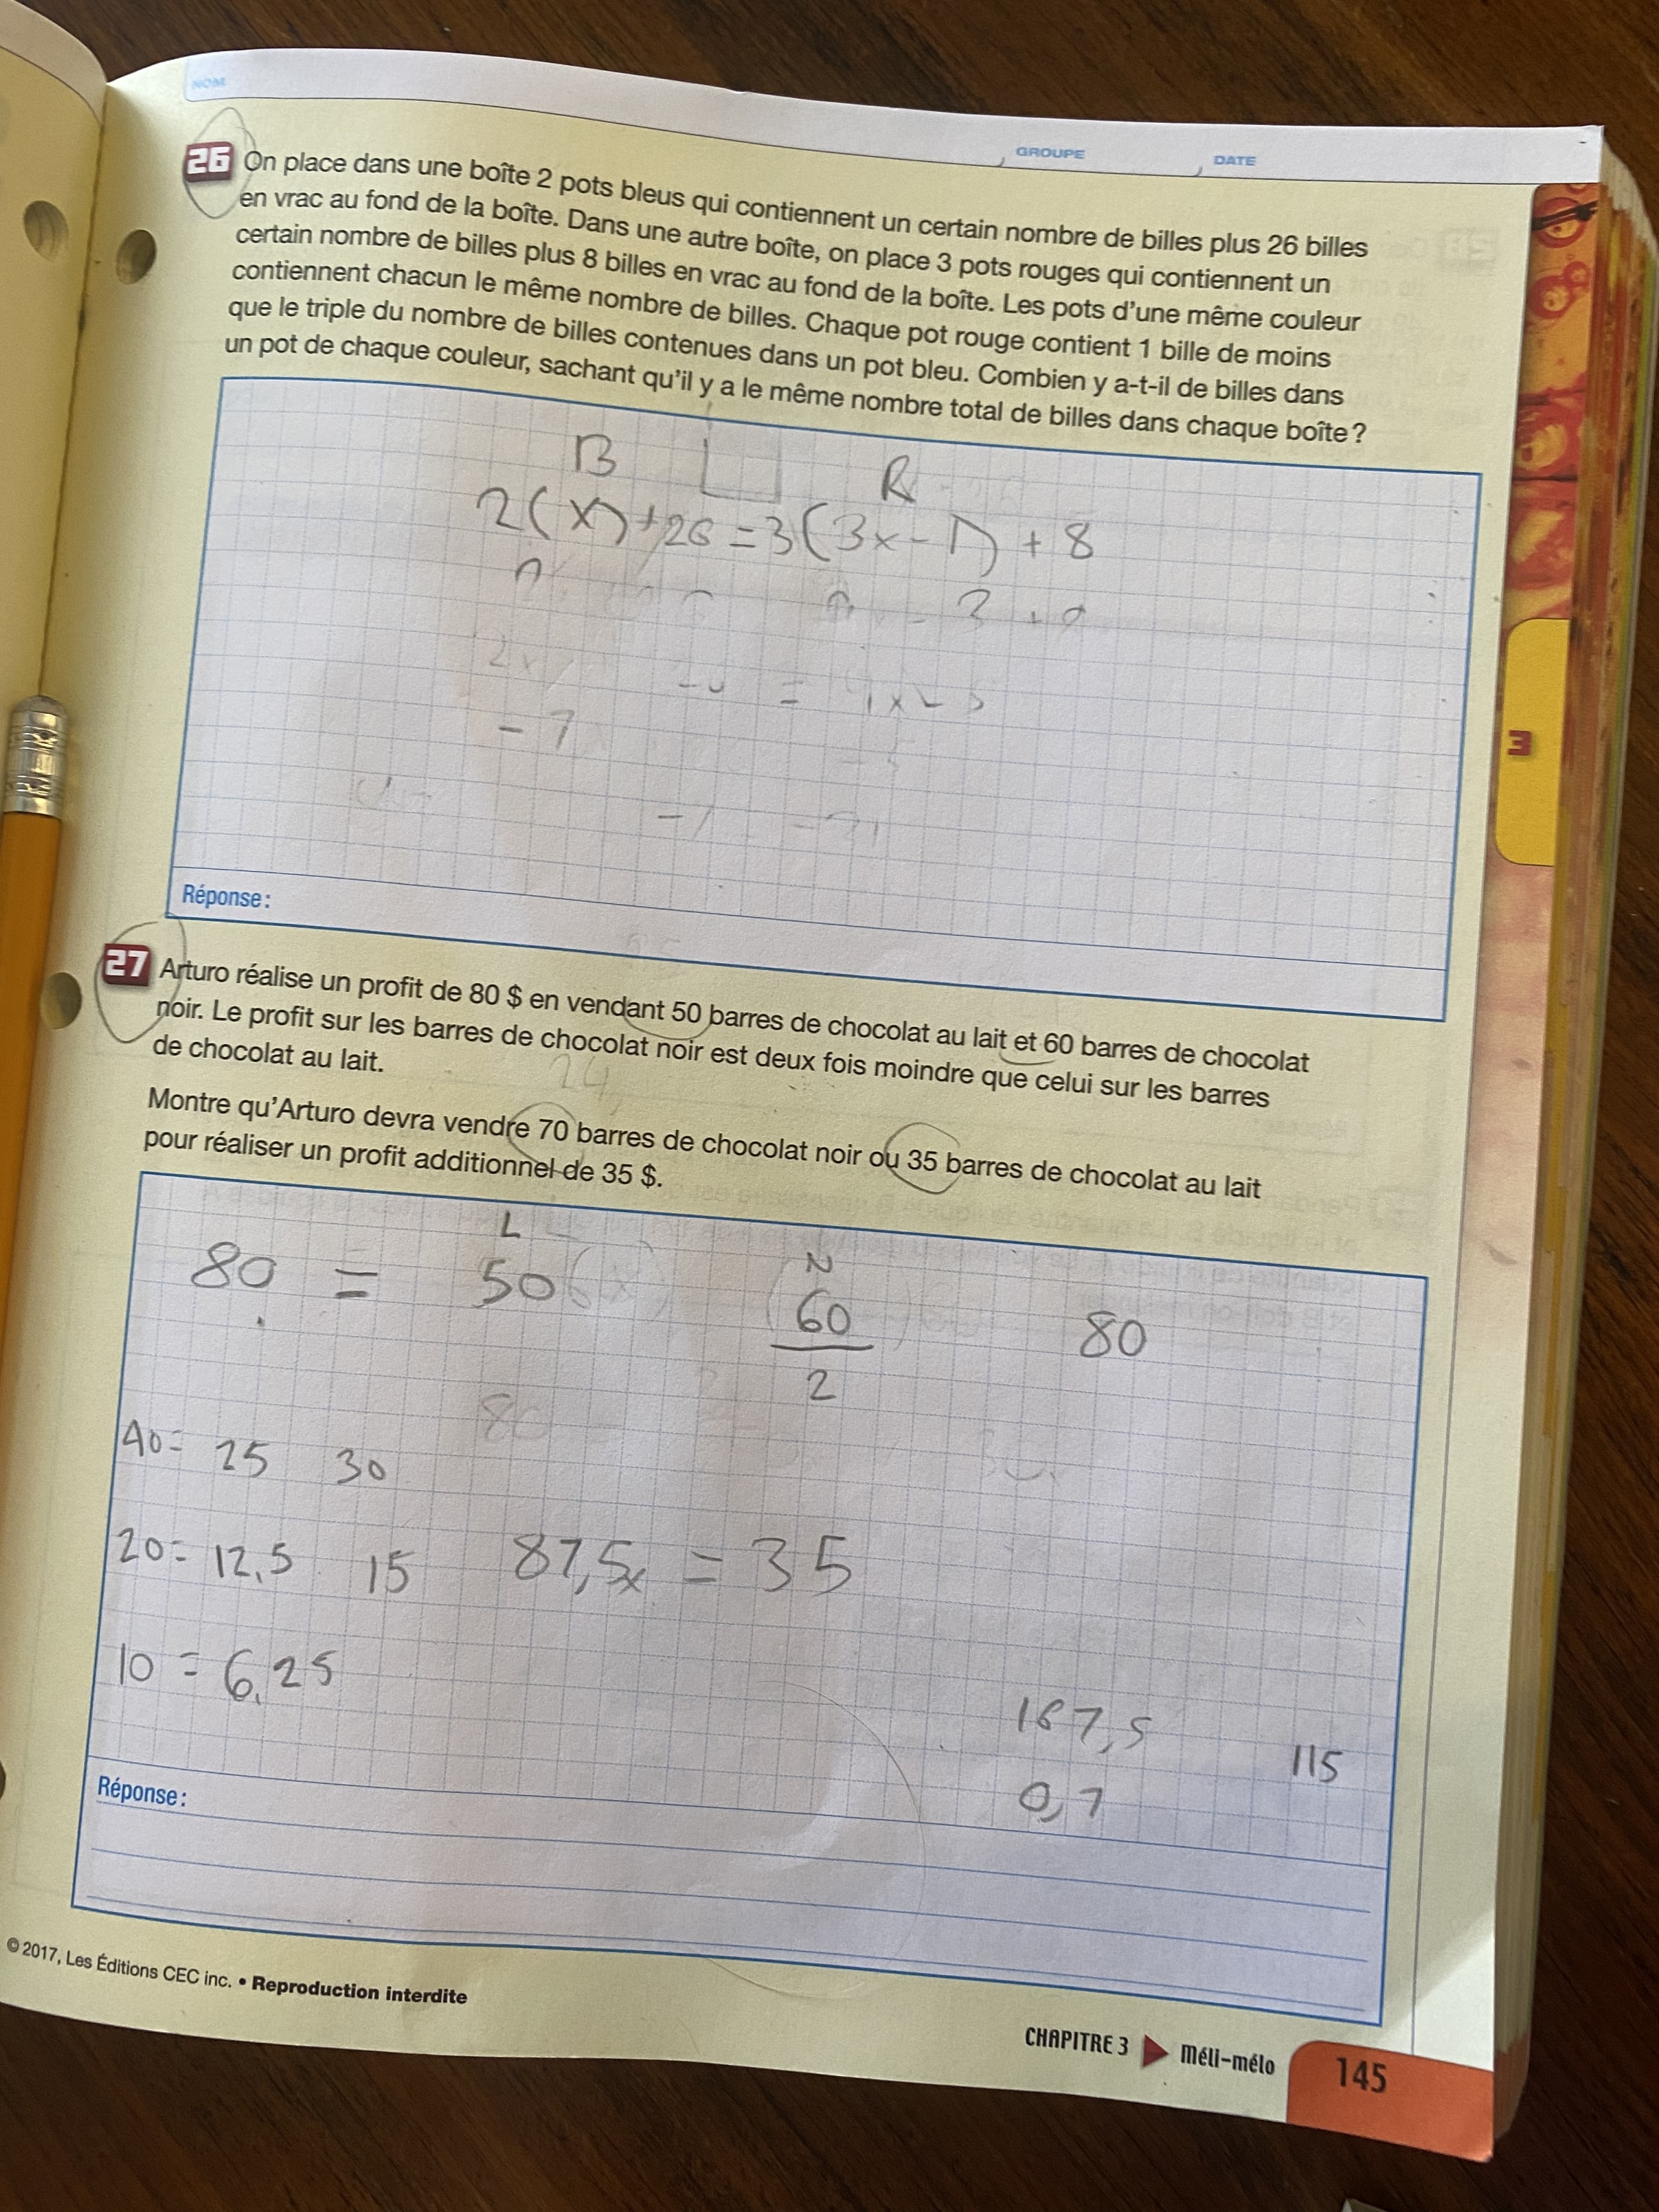 NOM
GROUPE
DATE
26 On place dans une boîte 2 pots bleus qui contiennent un certain nombre de billes plus 26 billes
en vrac au fond de la boîte. Dans une autre boîte, on place 3 pots rouges qui contiennent un
certain nombre de billes plus 8 billes en vrac au fond de la boîte. Les pots d'une même couleur
contiennent chacun le même nombre de billes. Chaque pot rouge contient 1 bille de moins
que le triple du nombre de billes contenues dans un pot bleu. Combien y a-t-il de billes dans
un pot de chaque couleur, sachant qu'il y a le même nombre total de billes dans chaque boîte?
B R
2(x)+26=3(3x-1)+8
- 7
Réponse:
27 Arturo réalise un profit de 80 $ en vendant 50 barres de chocolat au lait et 60 barres de chocolat
noir. Le profit sur les barres de chocolat noir est deux fois moindre que celui sur les barres
de chocolat au lait.
24
Montre qu'Arturo devra vendre 70 barres de chocolat noir ou 35 barres de chocolat au lait
pour réaliser un profit additionnel de 35 $.
L N
80 = 50(x) 60 80
2
80
40= 25 30
20= 12,5 15 87,5x = 35
10 = 6,25
167,5 115
0,7
Réponse:
3
© 2017, Les Éditions CEC inc. • Reproduction interdite
CHAPITRE 3 Méli-mélo 145